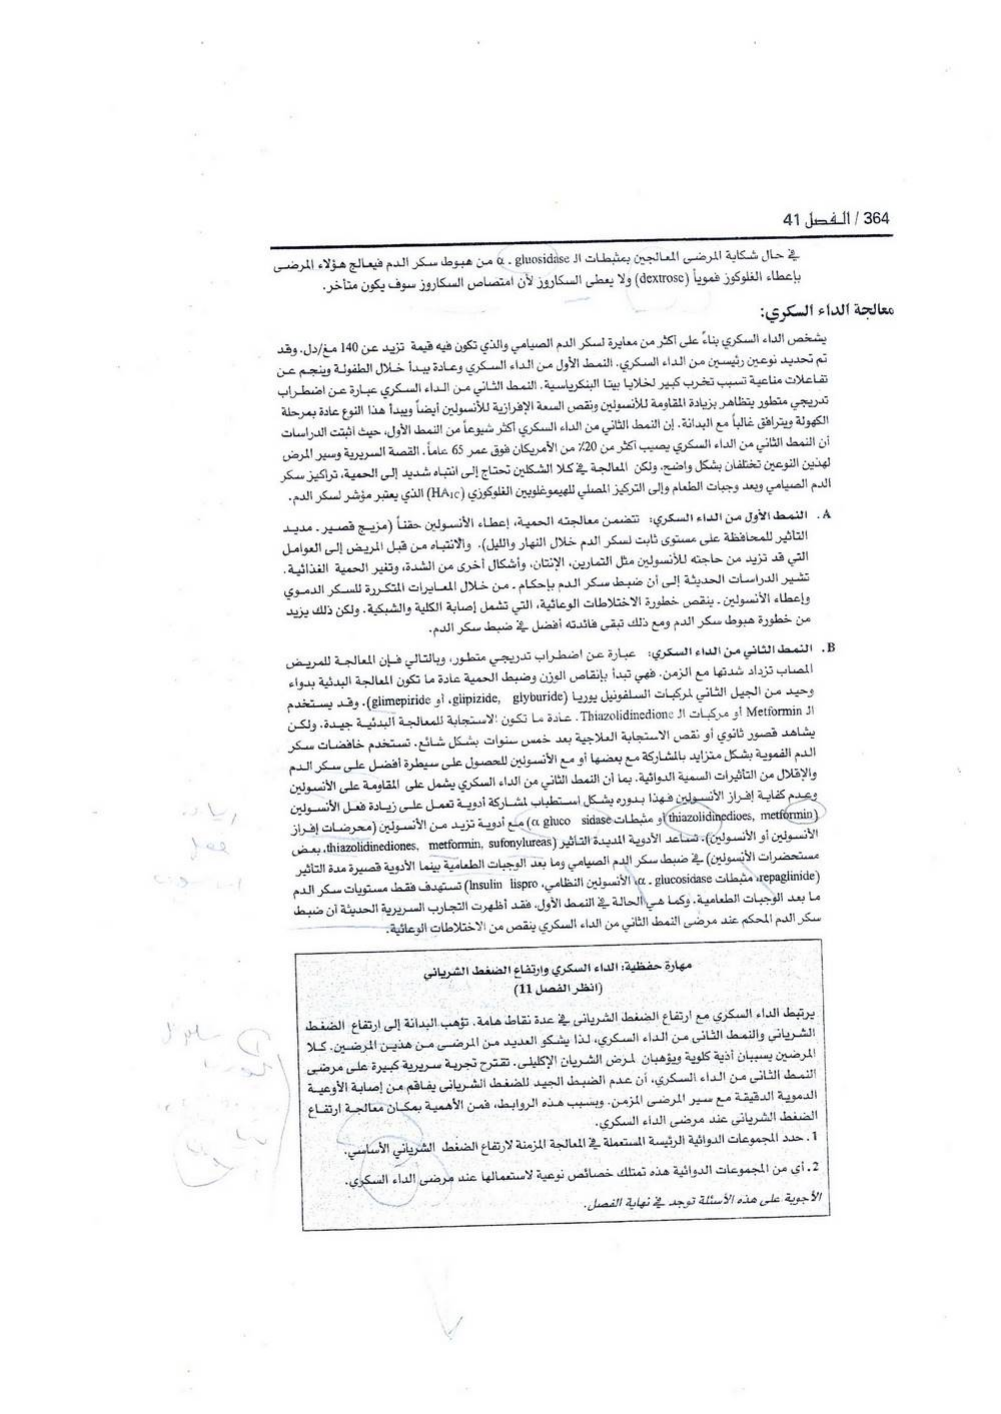 364 / الفصل 41
في حال شكاية المرضى المعالجين بمثبطات الـ α . gluosidase من هبوط سكر الدم فيعالج هؤلاء المرضى
بإعطاء الغلوكوز فموياً (dextrose) ولا يعطى السكاروز لأن امتصاص السكاروز سوف يكون متأخر.
معالجة الداء السكري:
يشخص الداء السكري بناءً على أكثر من معايرة لسكر الدم الصيامي والذي تكون فيه قيمة تزيد عن 140 مغ/دل. وقد
تم تحديد نوعين رئيسين من الداء السكري. النمط الأول من الداء السكري وعادة يبدأ خلال الطفولة وينجم عن
تفاعلات مناعية تسبب تخرب كبير لخلايا بيتا البنكرياسية. النمط الثاني من الداء السكري عبارة عن اضطراب
تدريجي متطور يتظاهر بزيادة المقاومة للأنسولين ونقص السعة الإفرازية للأنسولين أيضاً ويبدأ هذا النوع عادة بمرحلة
الكهولة ويترافق غالباً مع البدانة. إن النمط الثاني من الداء السكري أكثر شيوعاً من النمط الأول، حيث أثبتت الدراسات
أن النمط الثاني من الداء السكري يصيب أكثر من 20٪ من الأمريكان فوق عمر 65 عاماً. القصة السريرية وسير المرض
لهذين النوعين تختلفان بشكل واضح، ولكن المعالجة في كلا الشكلين تحتاج إلى انتباه شديد إلى الحمية، تراكيز سكر
الدم الصيامي وبعد وجبات الطعام وإلى التركيز المصلي للهيموغلوبين الغلوكوزي (HA1C) الذي يعتبر مؤشر لسكر الدم.
A. النمط الأول من الداء السكري: تتضمن معالجته الحمية، إعطاء الأنسولين حقناً (مزيج قصير ـ مديد
التأثير للمحافظة على مستوى ثابت لسكر الدم خلال النهار والليل). والانتباه من قبل المريض إلى العوامل
التي قد تزيد من حاجته للأنسولين مثل التمارين، الإنتان، وأشكال أخرى من الشدة، وتغير الحمية الغذائية.
تشير الدراسات الحديثة إلى أن ضبط سكر الدم بإحكام ـ من خلال المعايرات المتكررة للسكر الدموي
وإعطاء الأنسولين ـ ينقص خطورة الاختلاطات الوعائية، التي تشمل إصابة الكلية والشبكية. ولكن ذلك يزيد
من خطورة هبوط سكر الدم ومع ذلك تبقى فائدته أفضل في ضبط سكر الدم.
B. النمط الثاني من الداء السكري: عبارة عن اضطراب تدريجي متطور، وبالتالي فإن المعالجة للمريض
المصاب تزداد شدتها مع الزمن. فهي تبدأ بإنقاص الوزن وضبط الحمية عادة ما تكون المعالجة البدئية بدواء
وحيد من الجيل الثاني لمركبات السلفونيل يوريا (glipizide, glyburide، أو glimepiride). وقد يستخدم
الـ Metformin أو مركبات الـ Thiazolidinedione. عادة ما تكون الاستجابة للمعالجة البدئية جيدة. ولكن
يشاهد قصور ثانوي أو نقص الاستجابة العلاجية بعد خمس سنوات بشكل شائع. تستخدم خافضات سكر
الدم الفموية بشكل متزايد بالمشاركة مع بعضها أو مع الأنسولين للحصول على سيطرة أفضل على سكر الدم
والإقلال من التأثيرات السمية الدوائية. بما أن النمط الثاني من الداء السكري يشمل على المقاومة على الأنسولين
وعدم كفاية إفراز الأنسولين فهذا بدوره يشكل استطباب لمشاركة أدوية تعمل على زيادة فعل الأنسولين
(thiazolidinedioes, metformin أو مثبطات α gluco sidase) مع أدوية تزيد من الأنسولين (محرضات إفراز
الأنسولين أو الأنسولين). تساعد الأدوية المديدة التأثير (thiazolidinediones, metformin, sufonylureas، بعض
مستحضرات الأنسولين) في ضبط سكر الدم الصيامي وما بعد الوجبات الطعامية بينما الأدوية قصيرة مدة التأثير
(repaglinide، مثبطات α . glucosidase، الأنسولين النظامي، Insulin lispro) تستهدف فقط مستويات سكر الدم
ما بعد الوجبات الطعامية. وكما هي الحالة في النمط الأول، فقد أظهرت التجارب السريرية الحديثة أن ضبط
سكر الدم المحكم عند مرضى النمط الثاني من الداء السكري ينقص من الاختلاطات الوعائية.
مهارة حفظية: الداء السكري وارتفاع الضغط الشرياني
(انظر الفصل 11)
يرتبط الداء السكري مع ارتفاع الضغط الشرياني في عدة نقاط هامة. تؤهب البدانة إلى ارتفاع الضغط
الشرياني والنمط الثاني من الداء السكري، لذا يشكو العديد من المرضى من هذين المرضين. كلا
المرضين يسببان أذية كلوية ويؤهبان لمرض الشريان الإكليلي. تقترح تجربة سريرية كبيرة على مرضى
النمط الثاني من الداء السكري، أن عدم الضبط الجيد للضغط الشرياني يفاقم من إصابة الأوعية
الدموية الدقيقة مع سير المرضى المزمن. وبسبب هذه الروابط، فمن الأهمية بمكان معالجة ارتفاع
الضغط الشرياني عند مرضى الداء السكري.
1. حدد المجموعات الدوائية الرئيسة المستعملة في المعالجة المزمنة لارتفاع الضغط الشرياني الأساسي.
2. أي من المجموعات الدوائية هذه تمتلك خصائص نوعية لاستعمالها عند مرضى الداء السكري.
الأجوبة على هذه الأسئلة توجد في نهاية الفصل.